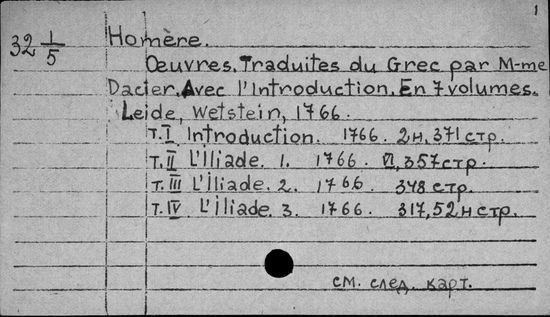 1
32 1/5 Homère.
Œuvres. Traduites du Grec par M-me
Dacier. Avec l'Introduction. En 7 volumes.
Leide, Wetstein, 1766.
т. I Introduction. 1766. 2н, 371 стр.
т. II L'Iliade. 1. 1766. VI, 357 стр.
т. III L'Iliade. 2. 1766. 348 стр.
т. IV L'Iliade. 3. 1766. 317, 52н стр.
см. след. карт.